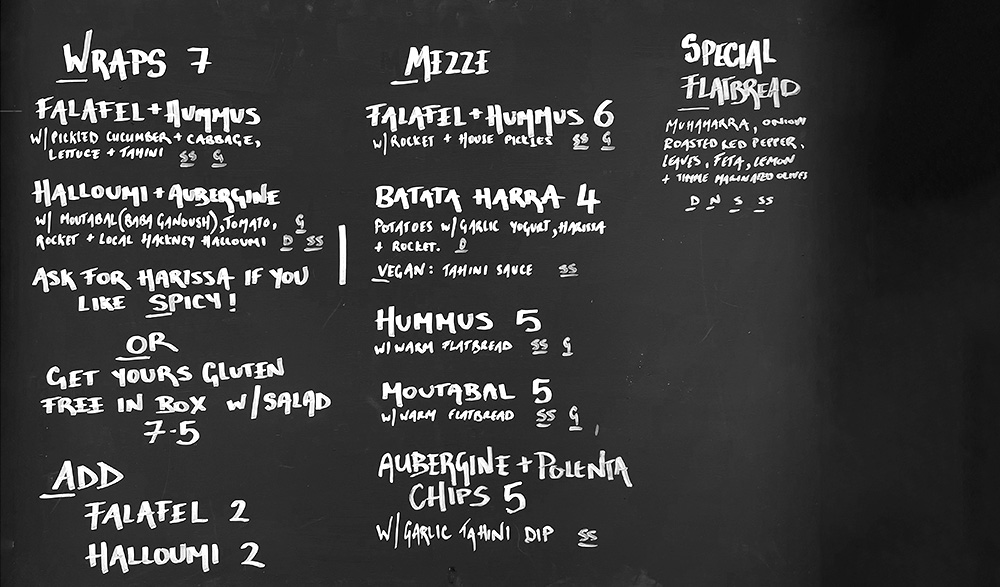 WRAPS 7
FALAFEL + HUMMUS
W/ PICKLED CUCUMBER + CABBAGE,
LETTUCE + TAHINI SS G
HALLOUMI + AUBERGINE
W/ MOUTABAL (BABA GANOUSH), TOMATO, G
ROCKET + LOCAL HACKNEY HALLOUMI D SS
ASK FOR HARISSA IF YOU
LIKE SPICY!
OR
GET YOURS GLUTEN
FREE IN BOX W/ SALAD
7-5
ADD
FALAFEL 2
HALLOUMI 2
MEZZE
FALAFEL + HUMMUS 6
W/ ROCKET + HOUSE PICKLES SS G
BATATA HARRA 4
POTATOES W/ GARLIC YOGURT, HARISSA
+ ROCKET. D
VEGAN: TAHINI SAUCE SS
HUMMUS 5
W/ WARM FLATBREAD SS G
MOUTABAL 5
W/ WARM FLATBREAD SS G
AUBERGINE + POLENTA
CHIPS 5
W/ GARLIC TAHINI DIP SS
SPECIAL
FLATBREAD
MUHAMARRA, ONION
ROASTED RED PEPPER,
LEAVES, FETA, LEMON
+ THYME MARINATED OLIVES
D N S SS